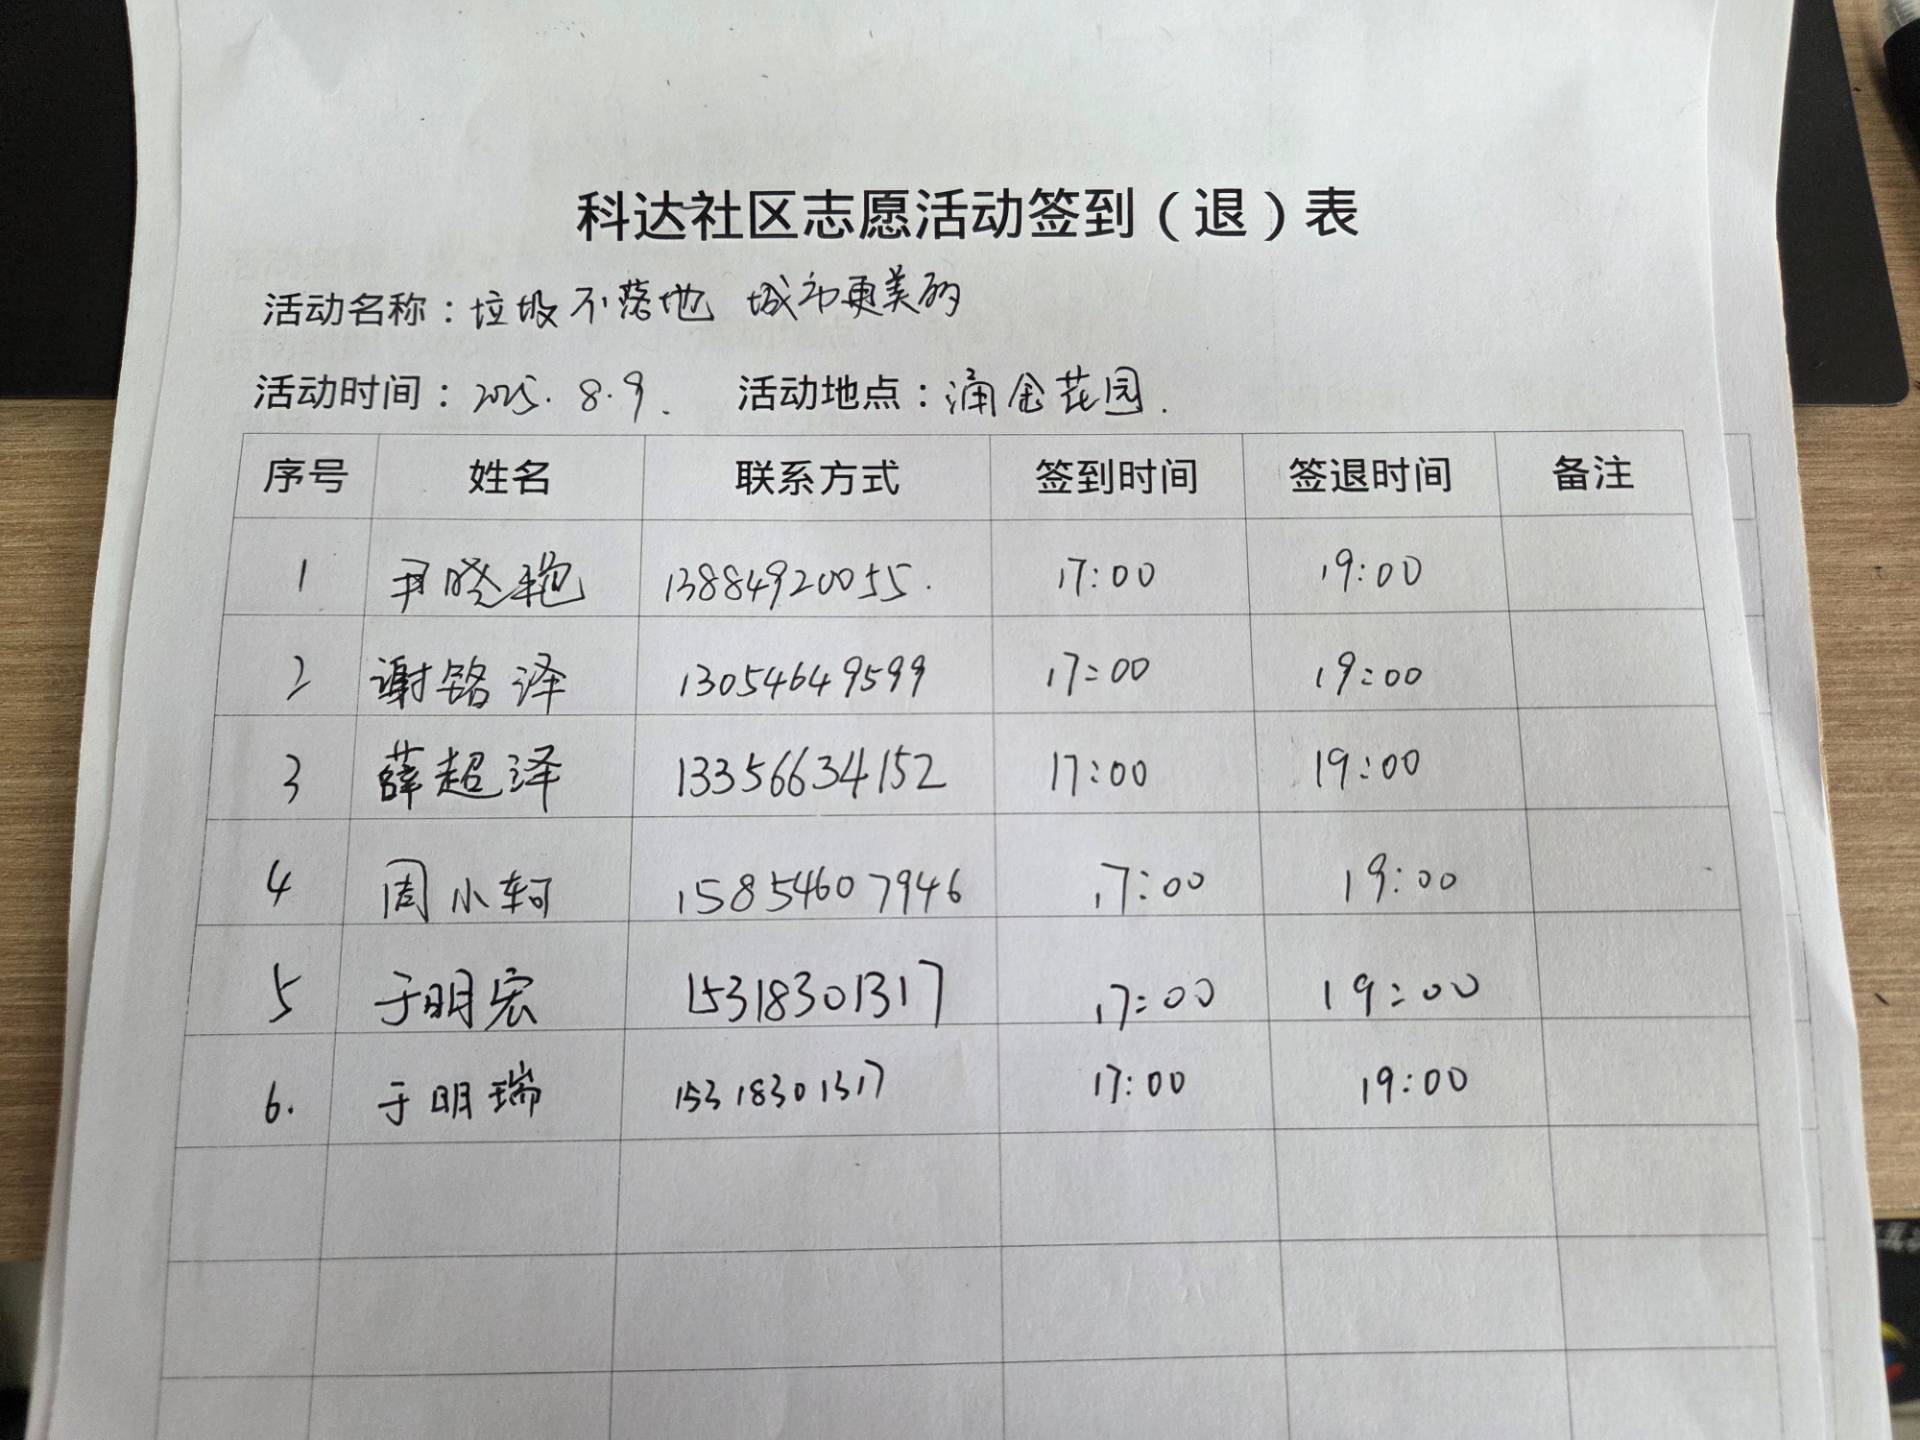 科达社区志愿活动签到（退）表
活动名称：垃圾不落地 城市更美丽
活动时间：2025.8.9. 活动地点：涌金花园.
序号 姓名 联系方式 签到时间 签退时间 备注
1 尹晓艳 13884920055. 17:00 19:00
2 谢铭泽 13054649599 17:00 19:00
3 薛超泽 13356634152 17:00 19:00
4 周小轲 15854607946 17:00 19:00
5 于明宏 15318301317 17:00 19:00
6. 于明瑞 15318301317 17:00 19:00